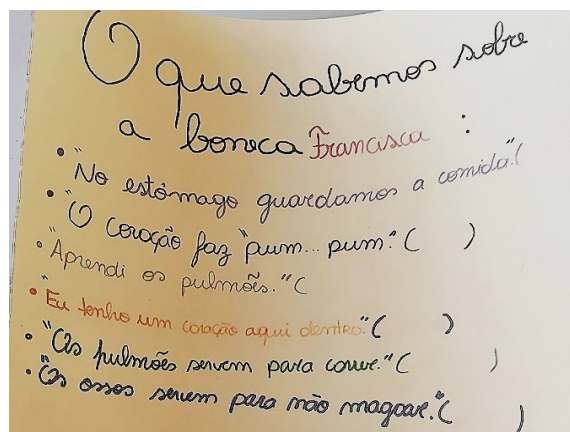 O que sabemos sobre
a boneca Francisca :
• "No estômago guardamos a comida." (
• "O coração faz "pum... pum." ( )
• "Aprendi os pulmões." (
• "Eu tenho um coração aqui dentro." ( )
• "Os pulmões servem para correr." ( )
• "Os ossos servem para não magoar." ( )